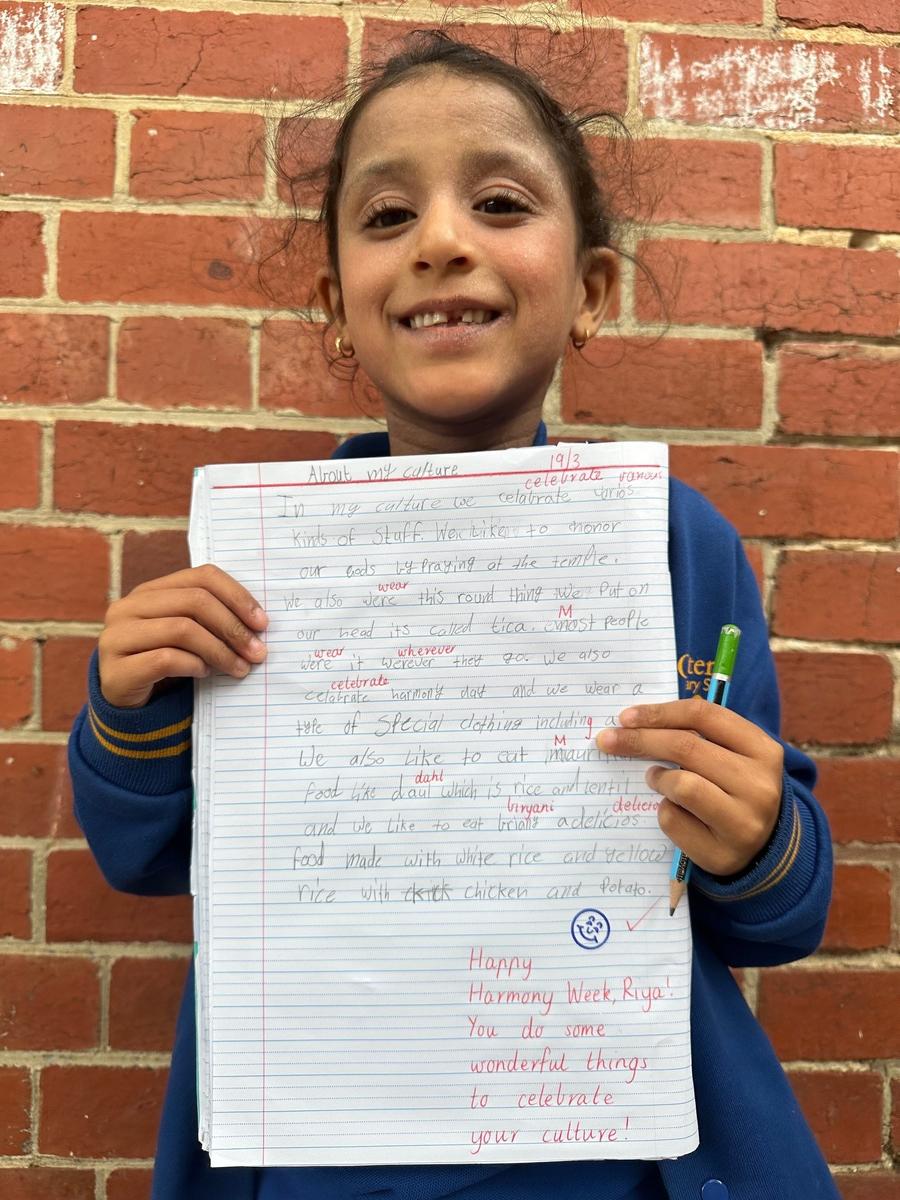 About my culture 19/3
celebrate various
In my culture we celabrate vrios
kinds of stuff. We Like to honor
our gods by Praying at the temple.
wear
We also were this round thing we Put on
M
our head its called tica. most People
wear wherever
were it werever they go. we also
celebrate
celabrate harmony day and we wear a
type of special clothing including a
M
We also Like to eat
dahl
food Like daul which is rice and lentil
biryani
and we Like to eat briany a delicios
food made with white rice and yellow
rice with chicken and Potato.
Happy
Harmony Week, Riya!
You do some
wonderful things
to celebrate
your culture!